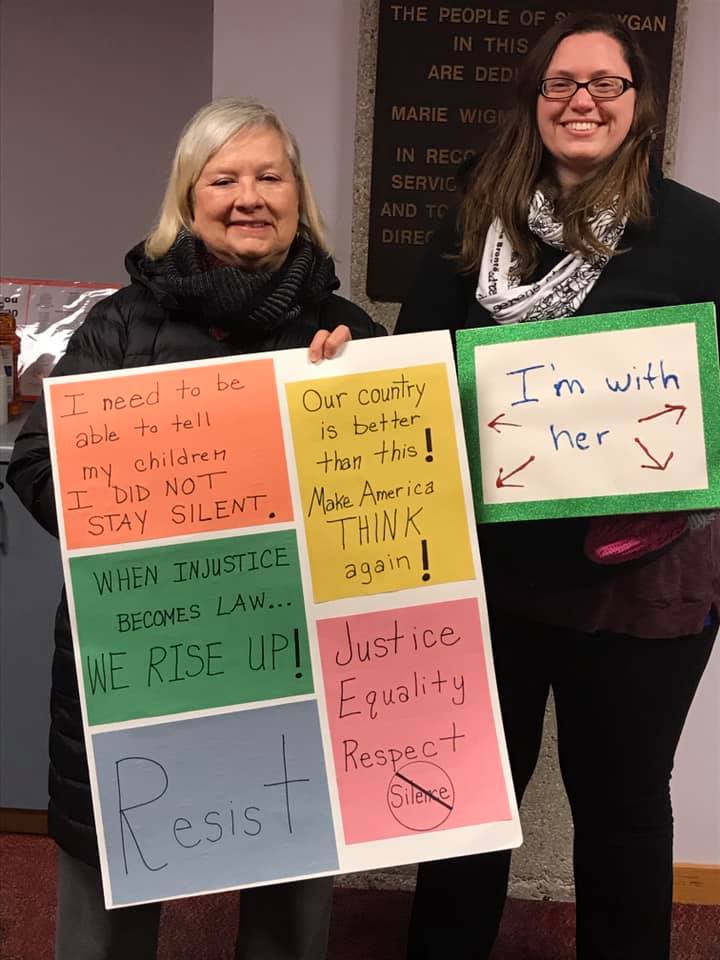 THE PEOPLE OF
IN THIS
ARE
MARIE
IN
AND TO
I need to be
able to tell
my children
I DID NOT
STAY SILENT.
Our country
is better
than this!
Make America
THINK
again!
WHEN INJUSTICE
BECOMES LAW...
WE RISE UP!
Justice
Equality
Respect
Silence
Resist
I'm with
her